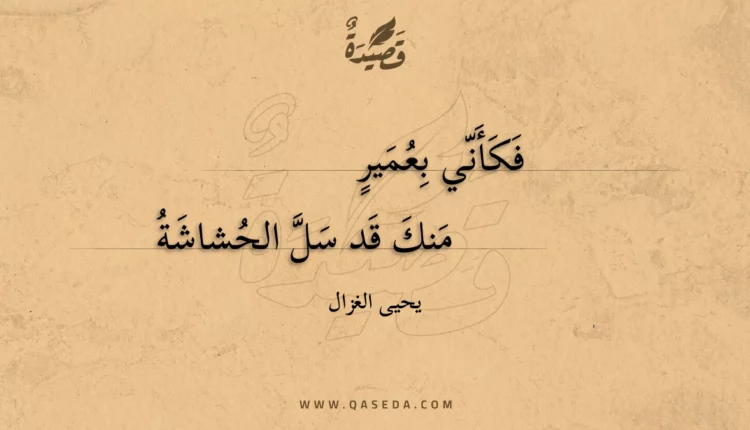 قَصِيْدَةٌ
فَكَأَنّي بِعُمَيرٍ
مَنكَ قَد سَلَّ الحُشاشَةُ
يحيى الغزال
WWW.QASEDA.COM